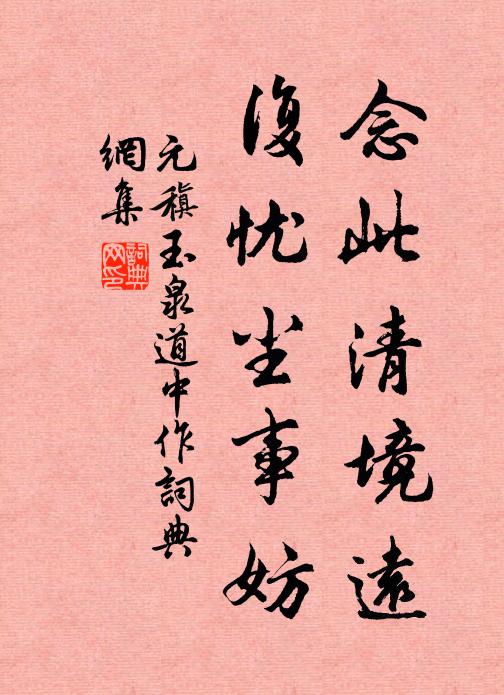 念此清境遠
復忧尘事妨
元稹玉泉道中作詞典
網集
詞典
网印